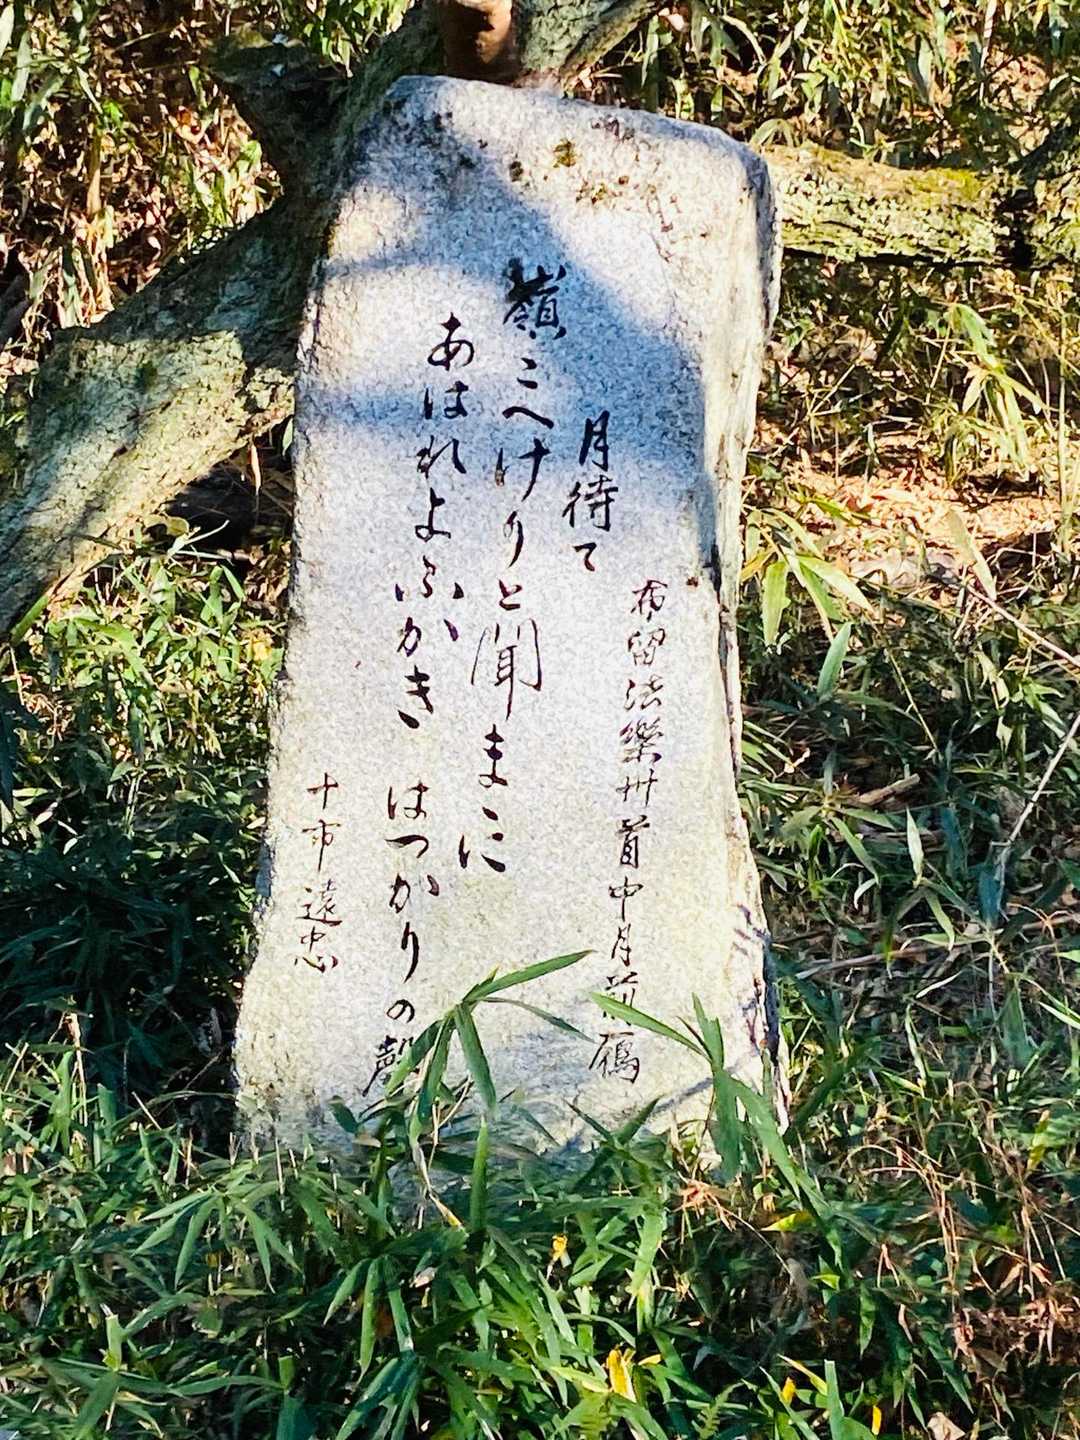 布留法樂卅首中月前雁
月待て
嶺こへけりと聞まに
あはれよふかき はつかりの聲
十市遠忠